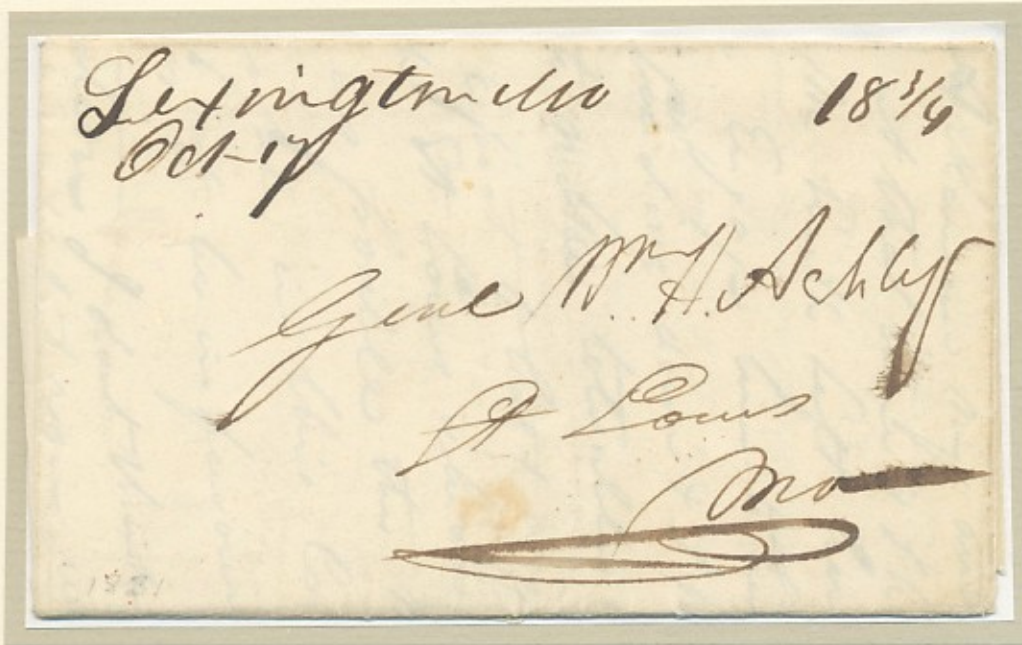 Lexington Mo
Oct 17
18 3/4
Genl Wm H. Ashley
St Louis
Mo
1831